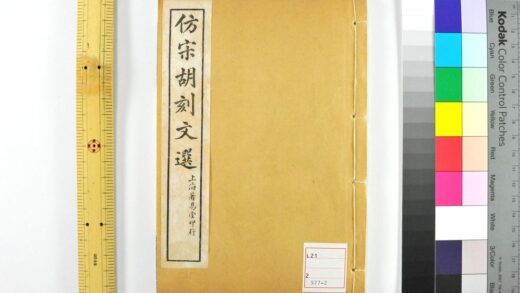 仿宋胡刻文選
上海著易堂印行
L21
2
577-2
Kodak Color Control Patches
Blue
Cyan
Green
Yellow
Red
Magenta
White
3/Color
Black